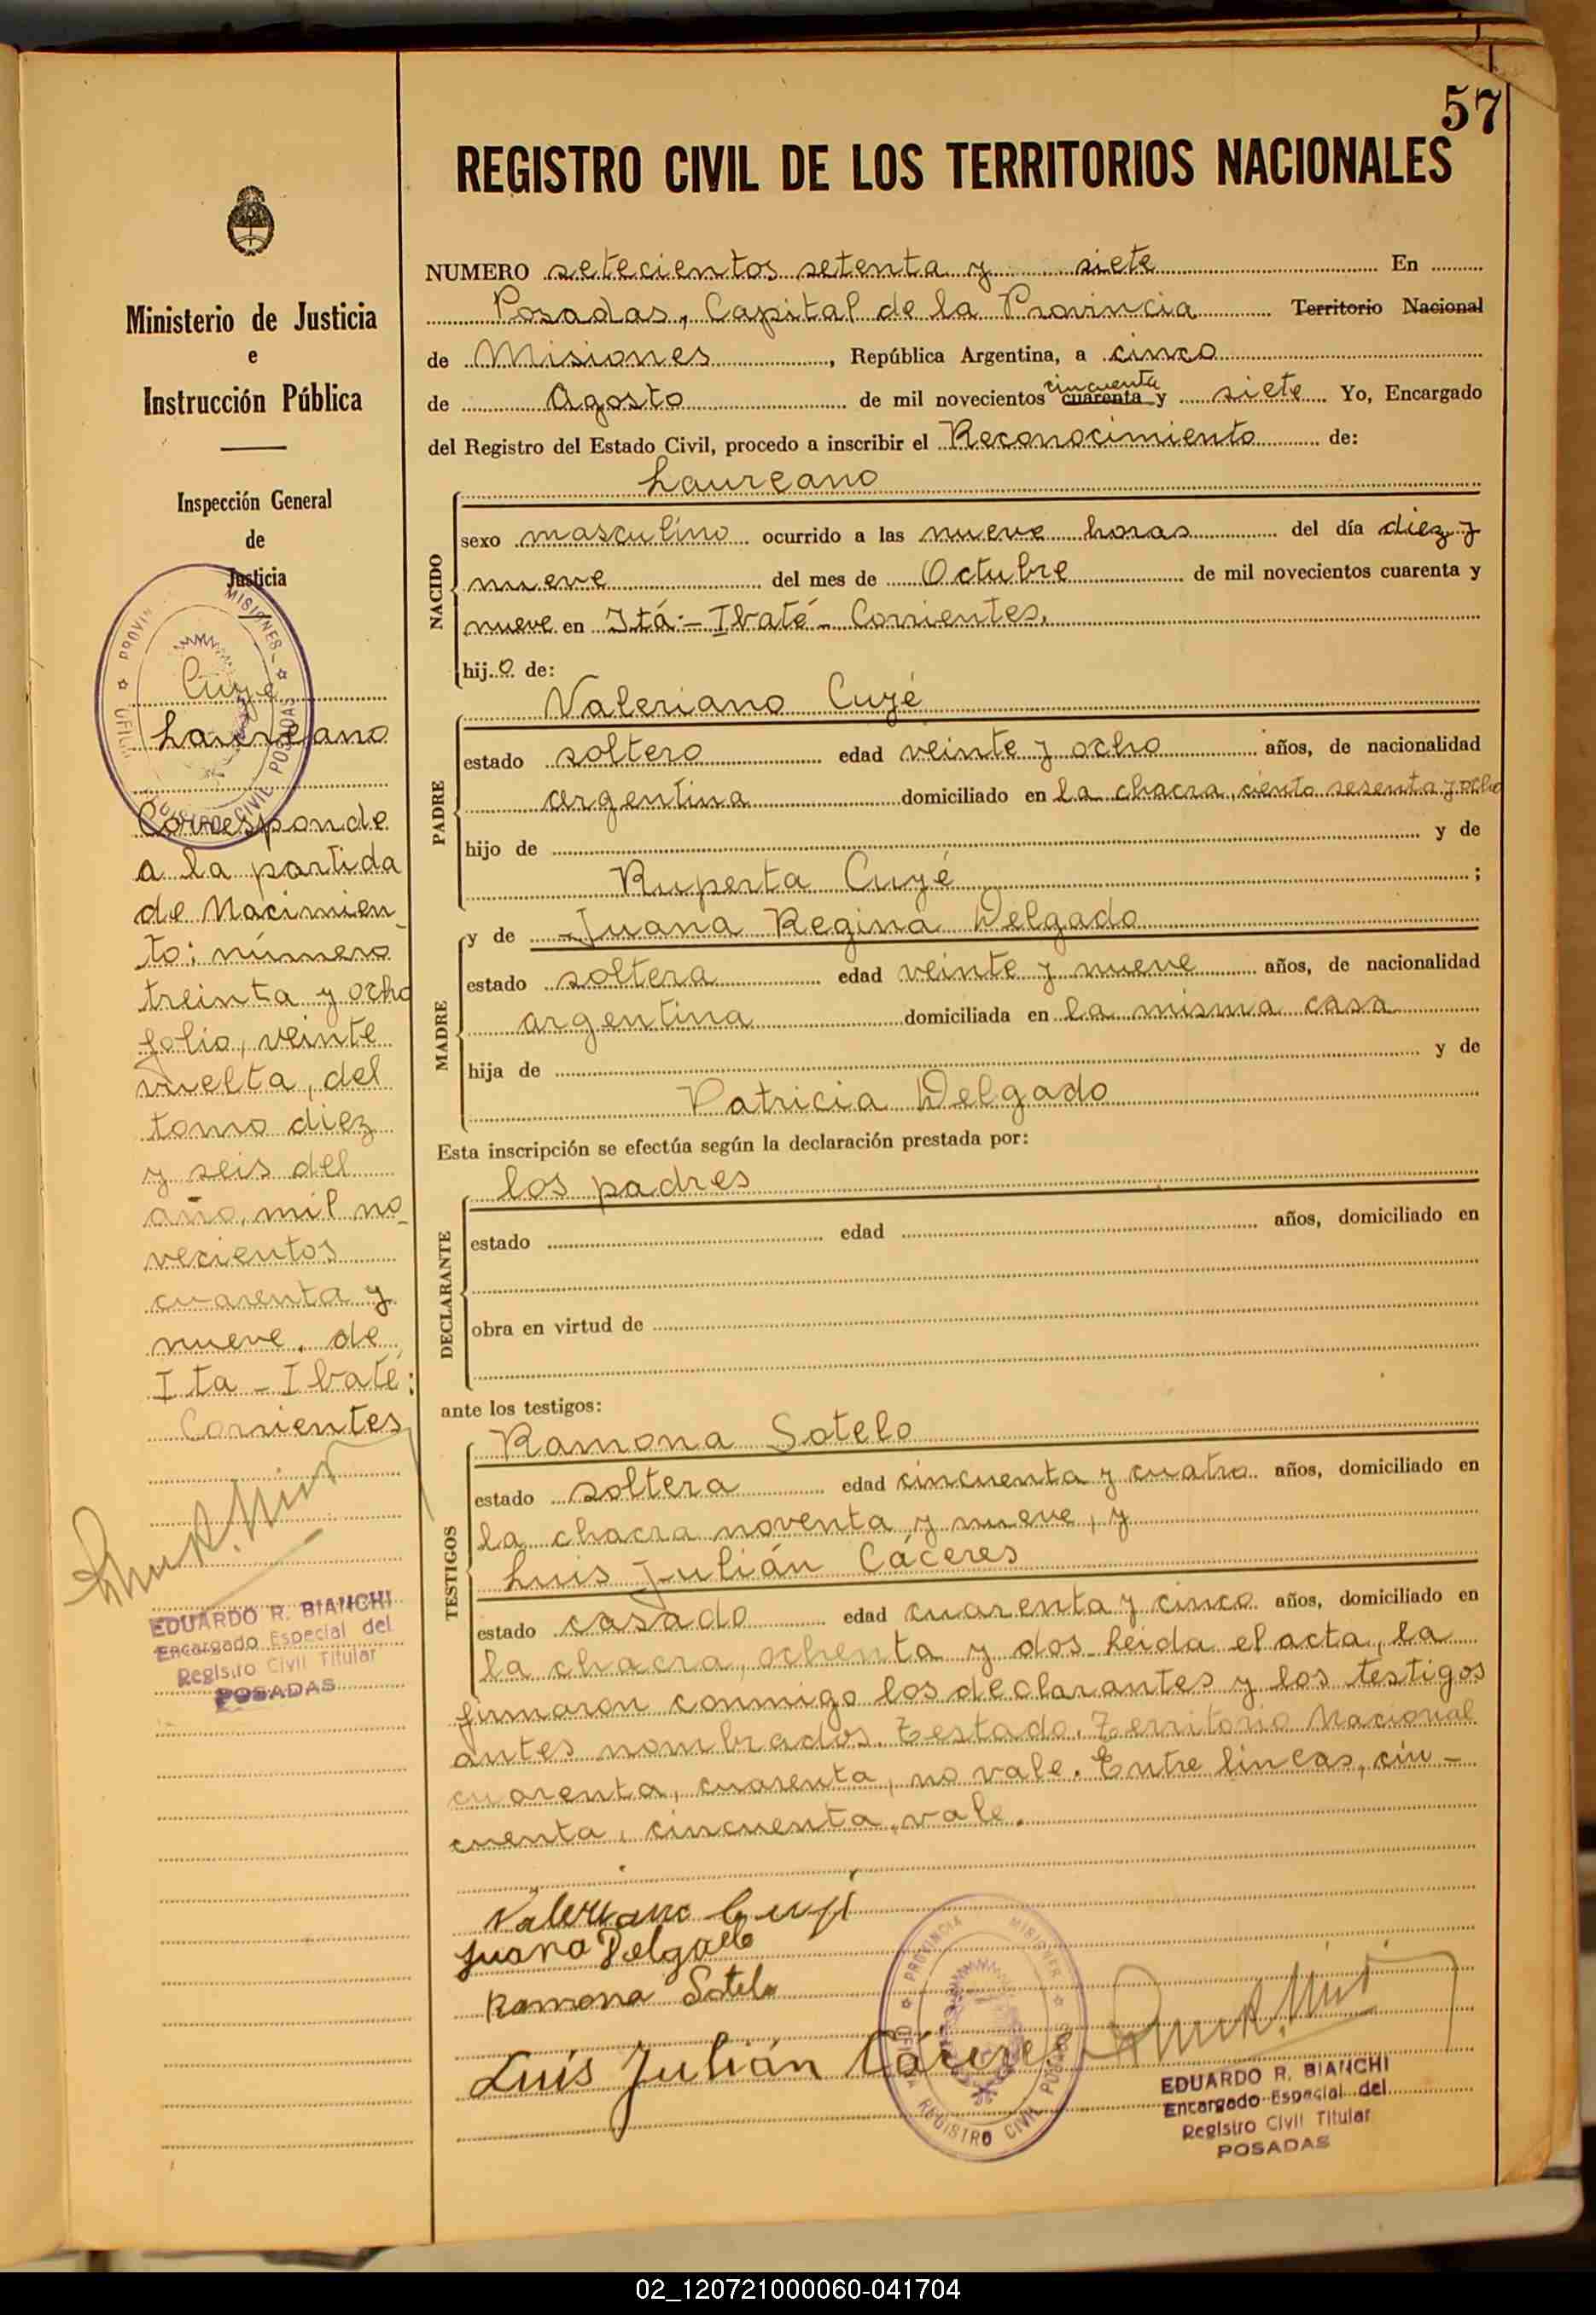 57
REGISTRO CIVIL DE LOS TERRITORIOS NACIONALES
Ministerio de Justicia
e
Instrucción Pública
Inspección General
de
Justicia
PROVIN MISIONES
REGISTRO CIVIL POSADAS
Cuyé
Laureano
Corresponde
a la partida
de Nacimien_
to; número
treinta y ocho
folio, veinte
vuelta, del
tomo diez
y seis del
año, mil no_
vecientos
cuarenta y
nueve, de
Ita - Ibaté:
Corrientes
EDUARDO R. BIANCHI
Encargado Especial del
Registro Civil Titular
POSADAS
NUMERO setecientos setenta y siete En
Posadas, Capital de la Provincia Territorio Nacional
de Misiones, República Argentina, a cinco
cincuenta
de Agosto de mil novecientos cuarenta y siete Yo, Encargado
del Registro del Estado Civil, procedo a inscribir el Reconocimiento de:
NACIDO
Laureano
sexo masculino ocurrido a las nueve horas del día diez y
nueve del mes de Octubre de mil novecientos cuarenta y
nueve en Itá - Ibaté - Corrientes.
hijo de:
PADRE
Valeriano Cuyé
estado soltero edad veinte y ocho años, de nacionalidad
argentina domiciliado en la chacra, ciento sesenta y ocho
hijo de y de
Ruperta Cuyé ;
MADRE
y de Juana Regina Delgado
estado soltera edad veinte y nueve años, de nacionalidad
argentina domiciliada en la misma casa
hija de y de
Patricia Delgado
Esta inscripción se efectúa según la declaración prestada por:
DECLARANTE
los padres
estado edad años, domiciliado en
obra en virtud de
ante los testigos:
TESTIGOS
Ramona Sotelo
estado soltera edad cincuenta y cuatro años, domiciliado en
la chacra noventa y nueve, y
Luis Julián Cáceres
estado casado edad cuarenta y cinco años, domiciliado en
la chacra, ochenta y dos. Leida el acta, la
firmaron conmigo los declarantes y los testigos
antes nombrados. Testado. Territorio Nacional
cuarenta, cuarenta, no vale. Entre lineas, cin-
cuenta, cincuenta, vale.
Valeriano Cuyé
Juana Delgado
Ramona Sotelo
Luis Julián Cáceres
PROVINCIA MISIONES
OFICINA REGISTRO CIVIL POSADAS
EDUARDO R. BIANCHI
Encargado Especial del
Registro Civil Titular
POSADAS
02_120721000060-041704